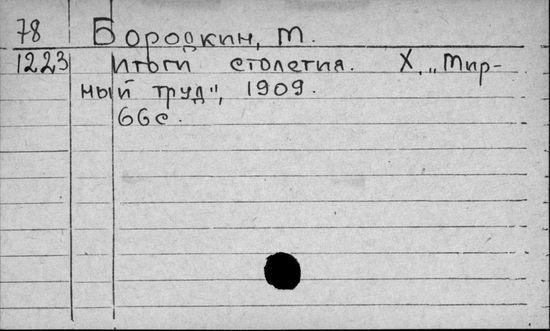 78 Бородкин, М.
1223 Итоги столетия. Х., "Мир-
ный труд", 1909.
66с.